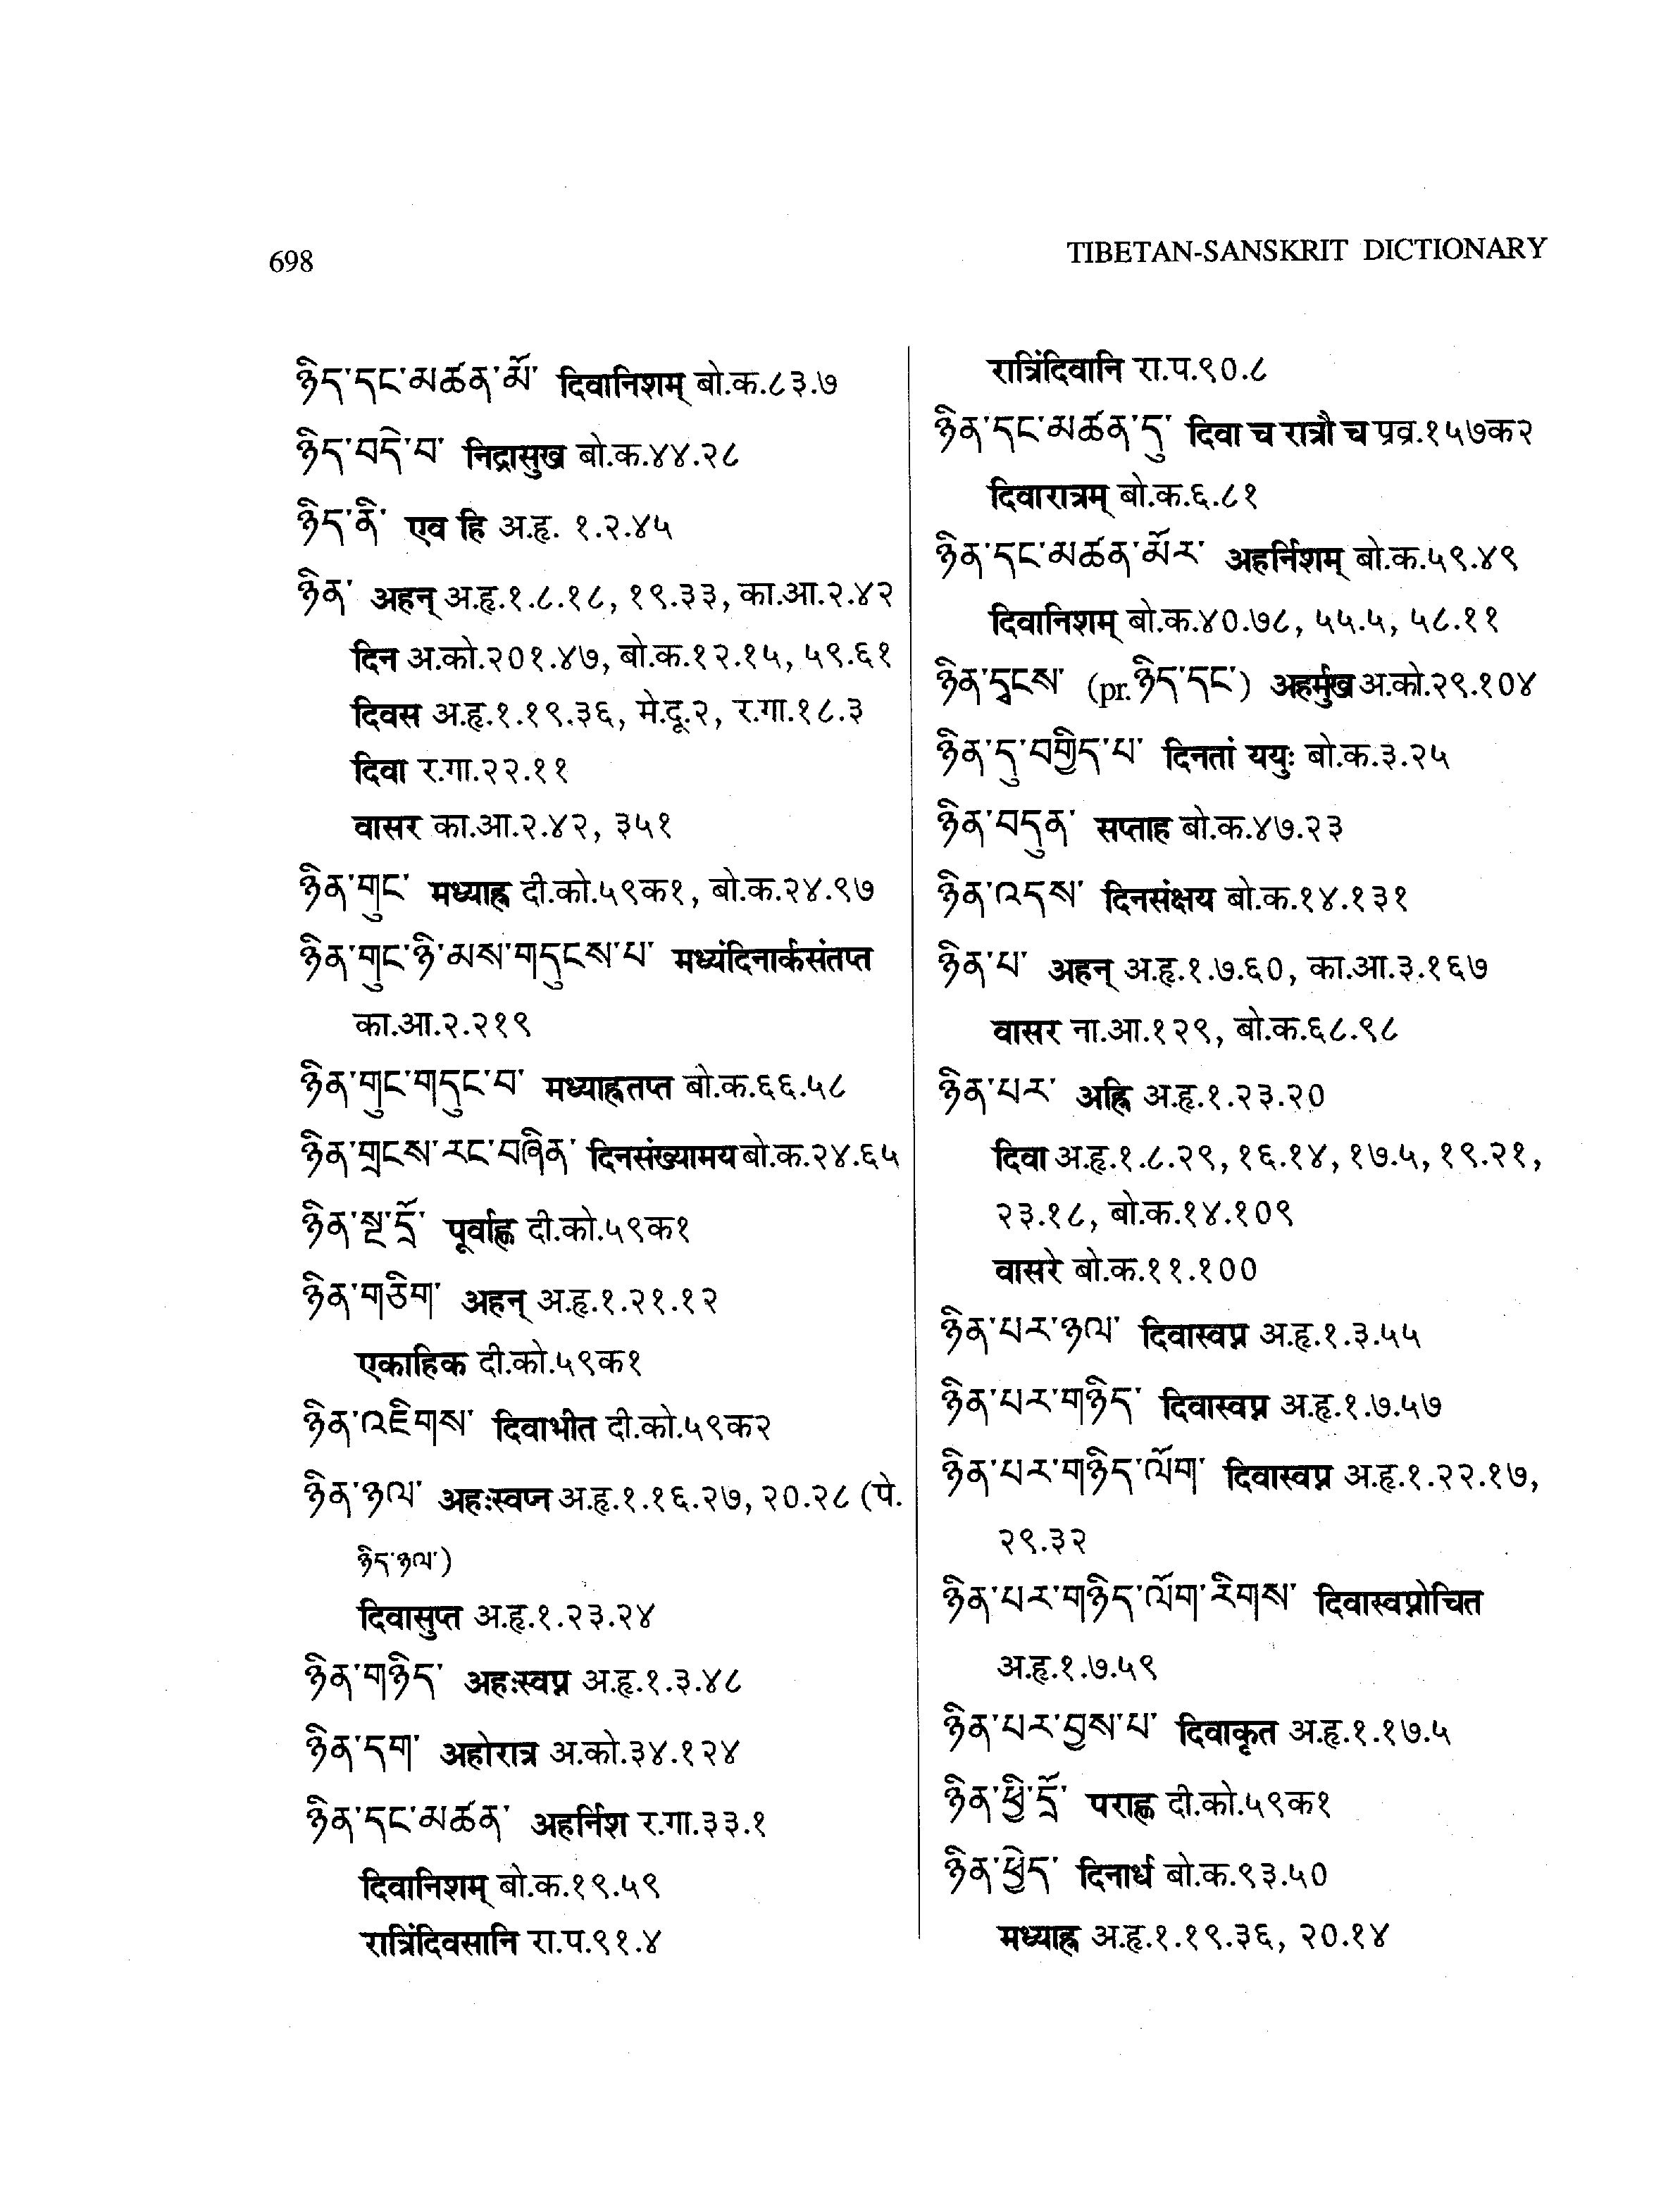 698
TIBETAN-SANSKRIT DICTIONARY
ཉིད་དང་མཚན་མོ་ दिवानिशम् बो.क.८३.७
ཉིད་བདེ་བ་ निद्रासुख बो.क.४४.२८
ཉིད་ནི་ एव हि अ.हृ. १.२.४५
ཉིན་ अहन् अ.हृ.१.८.१८, १९.३३, का.आ.२.४२
दिन अ.को.२०१.४७, बो.क.१२.१५, ५९.६१
दिवस अ.हृ.१.१९.३६, मे.दू.२, र.गा.१८.३
दिवा र.गा.२२.११
वासर का.आ.२.४२, ३५१
ཉིན་གུང་ मध्याह्न दी.को.५९क१, बो.क.२४.९७
ཉིན་གུང་ཉི་མས་གདུངས་པ་ मध्यंदिनार्कसंतप्त
का.आ.२.२१९
ཉིན་གུང་གདུང་བ་ मध्याह्नतप्त बो.क.६६.५८
ཉིན་གྲངས་རང་བཞིན་ दिनसंख्यामय बो.क.२४.६५
ཉིན་སྔ་དྲོ་ पूर्वाह्ण दी.को.५९क१
ཉིན་གཅིག་ अहन् अ.हृ.१.२१.१२
एकाहिक दी.को.५९क१
ཉིན་འཇིགས་ दिवाभीत दी.को.५९क२
ཉིན་ཉལ་ अहःस्वप्न अ.हृ.१.१६.२७, २०.२८ (पे.
ཉིད་ཉལ་)
दिवासुप्त अ.हृ.१.२३.२४
ཉིན་གཉིད་ अहःस्वप्न अ.हृ.१.३.४८
ཉིན་དག་ अहोरात्र अ.को.३४.१२४
ཉིན་དང་མཚན་ अहर्निश र.गा.३३.१
दिवानिशम् बो.क.१९.५९
रात्रिंदिवसानि रा.प.९१.४
रात्रिंदिवानि रा.प.९०.८
ཉིན་དང་མཚན་དུ་ दिवा च रात्रौ च प्रव्र.१५७क२
दिवारात्रम् बो.क.६.८१
ཉིན་དང་མཚན་མོར་ अहर्निशम् बो.क.५९.४९
दिवानिशम् बो.क.४०.७८, ५५.५, ५८.११
ཉིན་དྭངས་ (pr.ཉིད་དང་) अहर्मुख अ.को.२९.१०४
ཉིན་དུ་བགྱིད་པ་ दिनतां ययुः बो.क.३.२५
ཉིན་བདུན་ सप्ताह बो.क.४७.२३
ཉིན་འདས་ दिनसंक्षय बो.क.१४.१३१
ཉིན་པ་ अहन् अ.हृ.१.७.६०, का.आ.३.१६७
वासर ना.आ.१२९, बो.क.६८.९८
ཉིན་པར་ अह्नि अ.हृ.१.२३.२०
दिवा अ.हृ.१.८.२९, १६.१४, १७.५, १९.२१,
२३.१८, बो.क.१४.१०९
वासरे बो.क.११.१००
ཉིན་པར་ཉལ་ दिवास्वप्न अ.हृ.१.३.५५
ཉིན་པར་གཉིད་ दिवास्वप्न अ.हृ.१.७.५७
ཉིན་པར་གཉིད་ལོག་ दिवास्वप्न अ.हृ.१.२२.१७,
२९.३२
ཉིན་པར་གཉིད་ལོག་རིགས་ दिवास्वप्नोचित
अ.हृ.१.७.५९
ཉིན་པར་བྱས་པ་ दिवाकृत अ.हृ.१.१७.५
ཉིན་ཕྱི་དྲོ་ पराह्ण दी.को.५९क१
ཉིན་ཕྱེད་ दिनार्ध बो.क.९३.५०
मध्याह्न अ.हृ.१.१९.३६, २०.१४